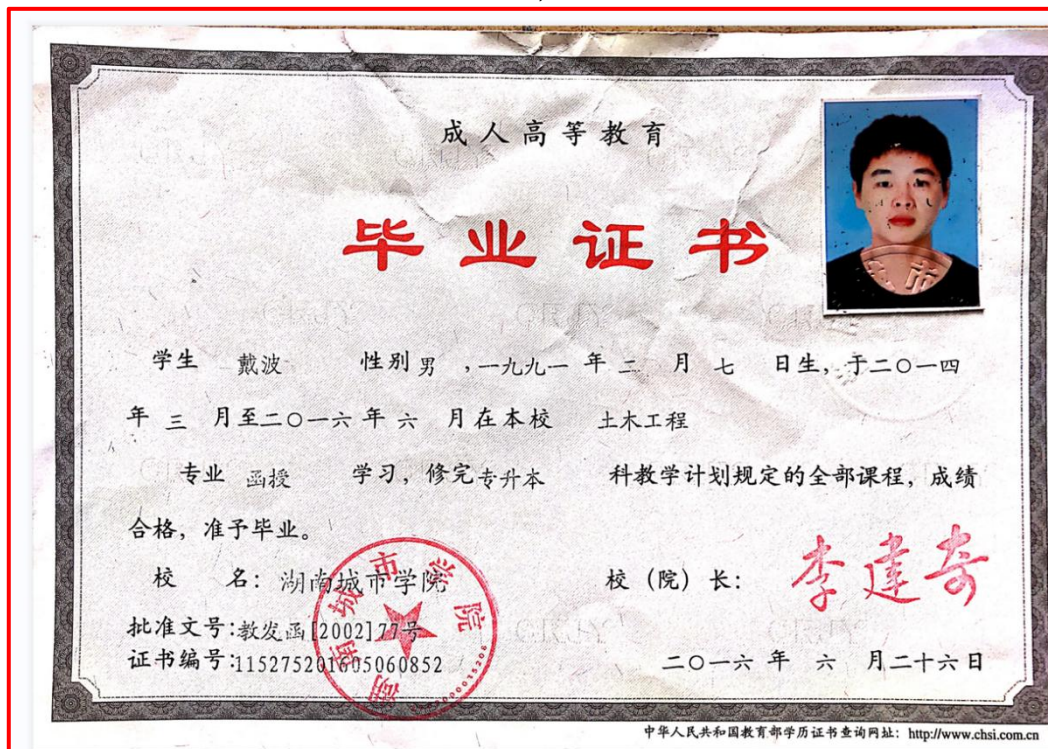 成人高等教育
毕业证书
学生 戴波 性别 男 ,一九九一 年 二 月 七 日生, 于二〇一四
年 三 月至二〇一六 年 六 月在本校 土木工程
专业 函授 学习, 修完 专升本 科教学计划规定的全部课程, 成绩
合格, 准予毕业。
校 名: 湖南城市学院
校 (院) 长: 李建奇
批准文号:教发函[2002]77号
证书编号:115275201605060852
二〇一六 年 六 月二十六日
湖南城市学院
中华人民共和国教育部学历证书查询网址: http://www.chsi.com.cn